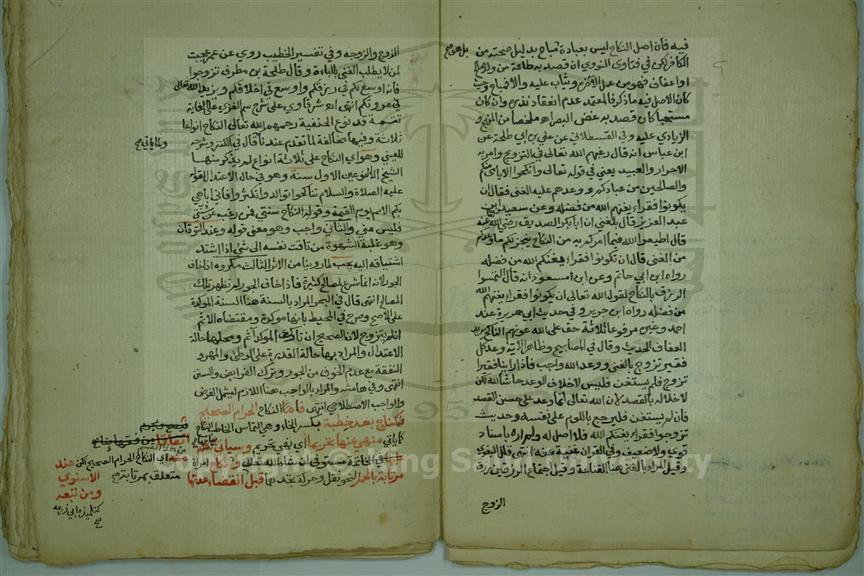 فيه فان اصل النكاح ليس بعبادة مباح بدليل صحته من
الكافر لكن في فتاوى النووي ان قصد به طاعة من ولد صالح
او اعفاف فهو من عمل الاخرة ويثاب عليه والا فمباح وحيث
كان الاصل فيه ما ذكر فالمعتمد عدم انعقاد نذره وان كان
مستحبا كان قصد به غض البصر اه ملخصا من المزج و
الزيادي عليه وفي القسطلاني عن علي بن ابي طلحة عن
ابن عباس انه قال رغبهم الله تعالى في التزويج وامر به
الاحرار والعبيد يعني في قوله تعالى وانكحوا الايامى منكم
والصالحين من عبادكم ووعدهم عليه الغنى فقال ان
يكونوا فقراء يغنهم الله من فضله وعن سعيد ابن
عبد العزيز قال بلغني ان ابا بكر الصديق رضي الله عنه
قال اطيعوا الله فيما امركم به من النكاح ينجز لكم ما وعدكم
من الغنى قال ان تكونوا فقراء يغنكم الله من فضله
رواه ابن ابي حاتم وعن ابن مسعود انه قال التمسوا
الرزق بالنكاح لقوله الله تعالى ان يكونوا فقراء يغنهم الله
من فضله رواه ابن جرير وفي حديث ابي هريرة عند
احمد وغيره مرفوعا ثلاثة حق على الله عونهم الناكح يريد
العفاف الحديث وقال في المصابيح وظاهر الاية وعد كل
فقير تزوج بالغنى ووعد الله واجب فاذا راينا فقيرا
تزوج فلم يستغن فليس لاخلاف الوعد حاشا الله
لاخلاله بالقصد لان الله تعالى انما وعد على حسن القصد
فان لم يستغن فليرجع باللوم على نفسه وحديث
تزوجوا فقراء يغنكم الله فلا اصل له ولم اره باسناد
قوي ولا ضعيف وفي القران غنية عنه انتهى
وقيل المراد بالغنى هنا القناعة وقيل اجتماع الرزقين رزق
الزوج
الزوج والزوجه وفي تفسير الخطيب روي عن عمر عجبت
لمن لا يطلب الغنى بالباءة وقال طلحة بن مطرف تزوجوا
فانه اوسع لكم في رزقكم واوسع في اخلاقكم ويزيد الله تعالى
في مروتكم انتهى
تتمة قد نوع الحنفية رحمهم الله تعالى النكاح انواعا
ثلاثة وفيها مخالفة لما تقدم عندنا قال في الكنز وشرحه
للعيني وهو اي النكاح على ثلاثة انواع
ولما ياتي صح
الاول سنة وهو في حال الاعتدال لقوله
عليه الصلاة والسلام تناكحوا توالدوا تكثروا فاني اباهي
بكم الامم يوم القيمة وقوله النكاح سنتي فمن رغب عن سنتي
فليس مني والثاني واجب وهو معنى قوله وعند التوقان
وهو غلبة الشهوة من تاقت نفسه الى شي اذا اشتد
اشتياقه اليه يجب لما روينا من الاثر الثالث مكروه اذا خاف
الجور لانه انما شرع لمصالح كثيرة فاذا خاف الجور لم تظهر تلك
المصالح انتهى قال في البحر المراد بالسنة هنا السنة الموكدة
على الاصح وصرح في المحيط بانها موكدة ومقتضاه الاثم
لو لم يتزوج لان الصحيح ان تارك الموكد اثم ومحلها حالة
الاعتدال والمراد بها حالة القدرة على الوطئ والمهر و
النفقة مع عدم الخوف من الجور وترك الفرايض والسنن
انتهى وفي هامشه والمراد بالواجب هنا اللازم ليشمل الفرض
والواجب الاصطلاحي انتهى فاما النكاح الحرام الصحيح
فكنكاح بعد خطبة بكسر الخاء وهي التماس الخاطب النكاح
منهي عنها
وسياتي
قبل انقضا عدتها
اي النكاح الحرام الصحيح
عند
الاسنوي
ومن تبعه
متعلق
كتلميذه ابي زرعه
صح